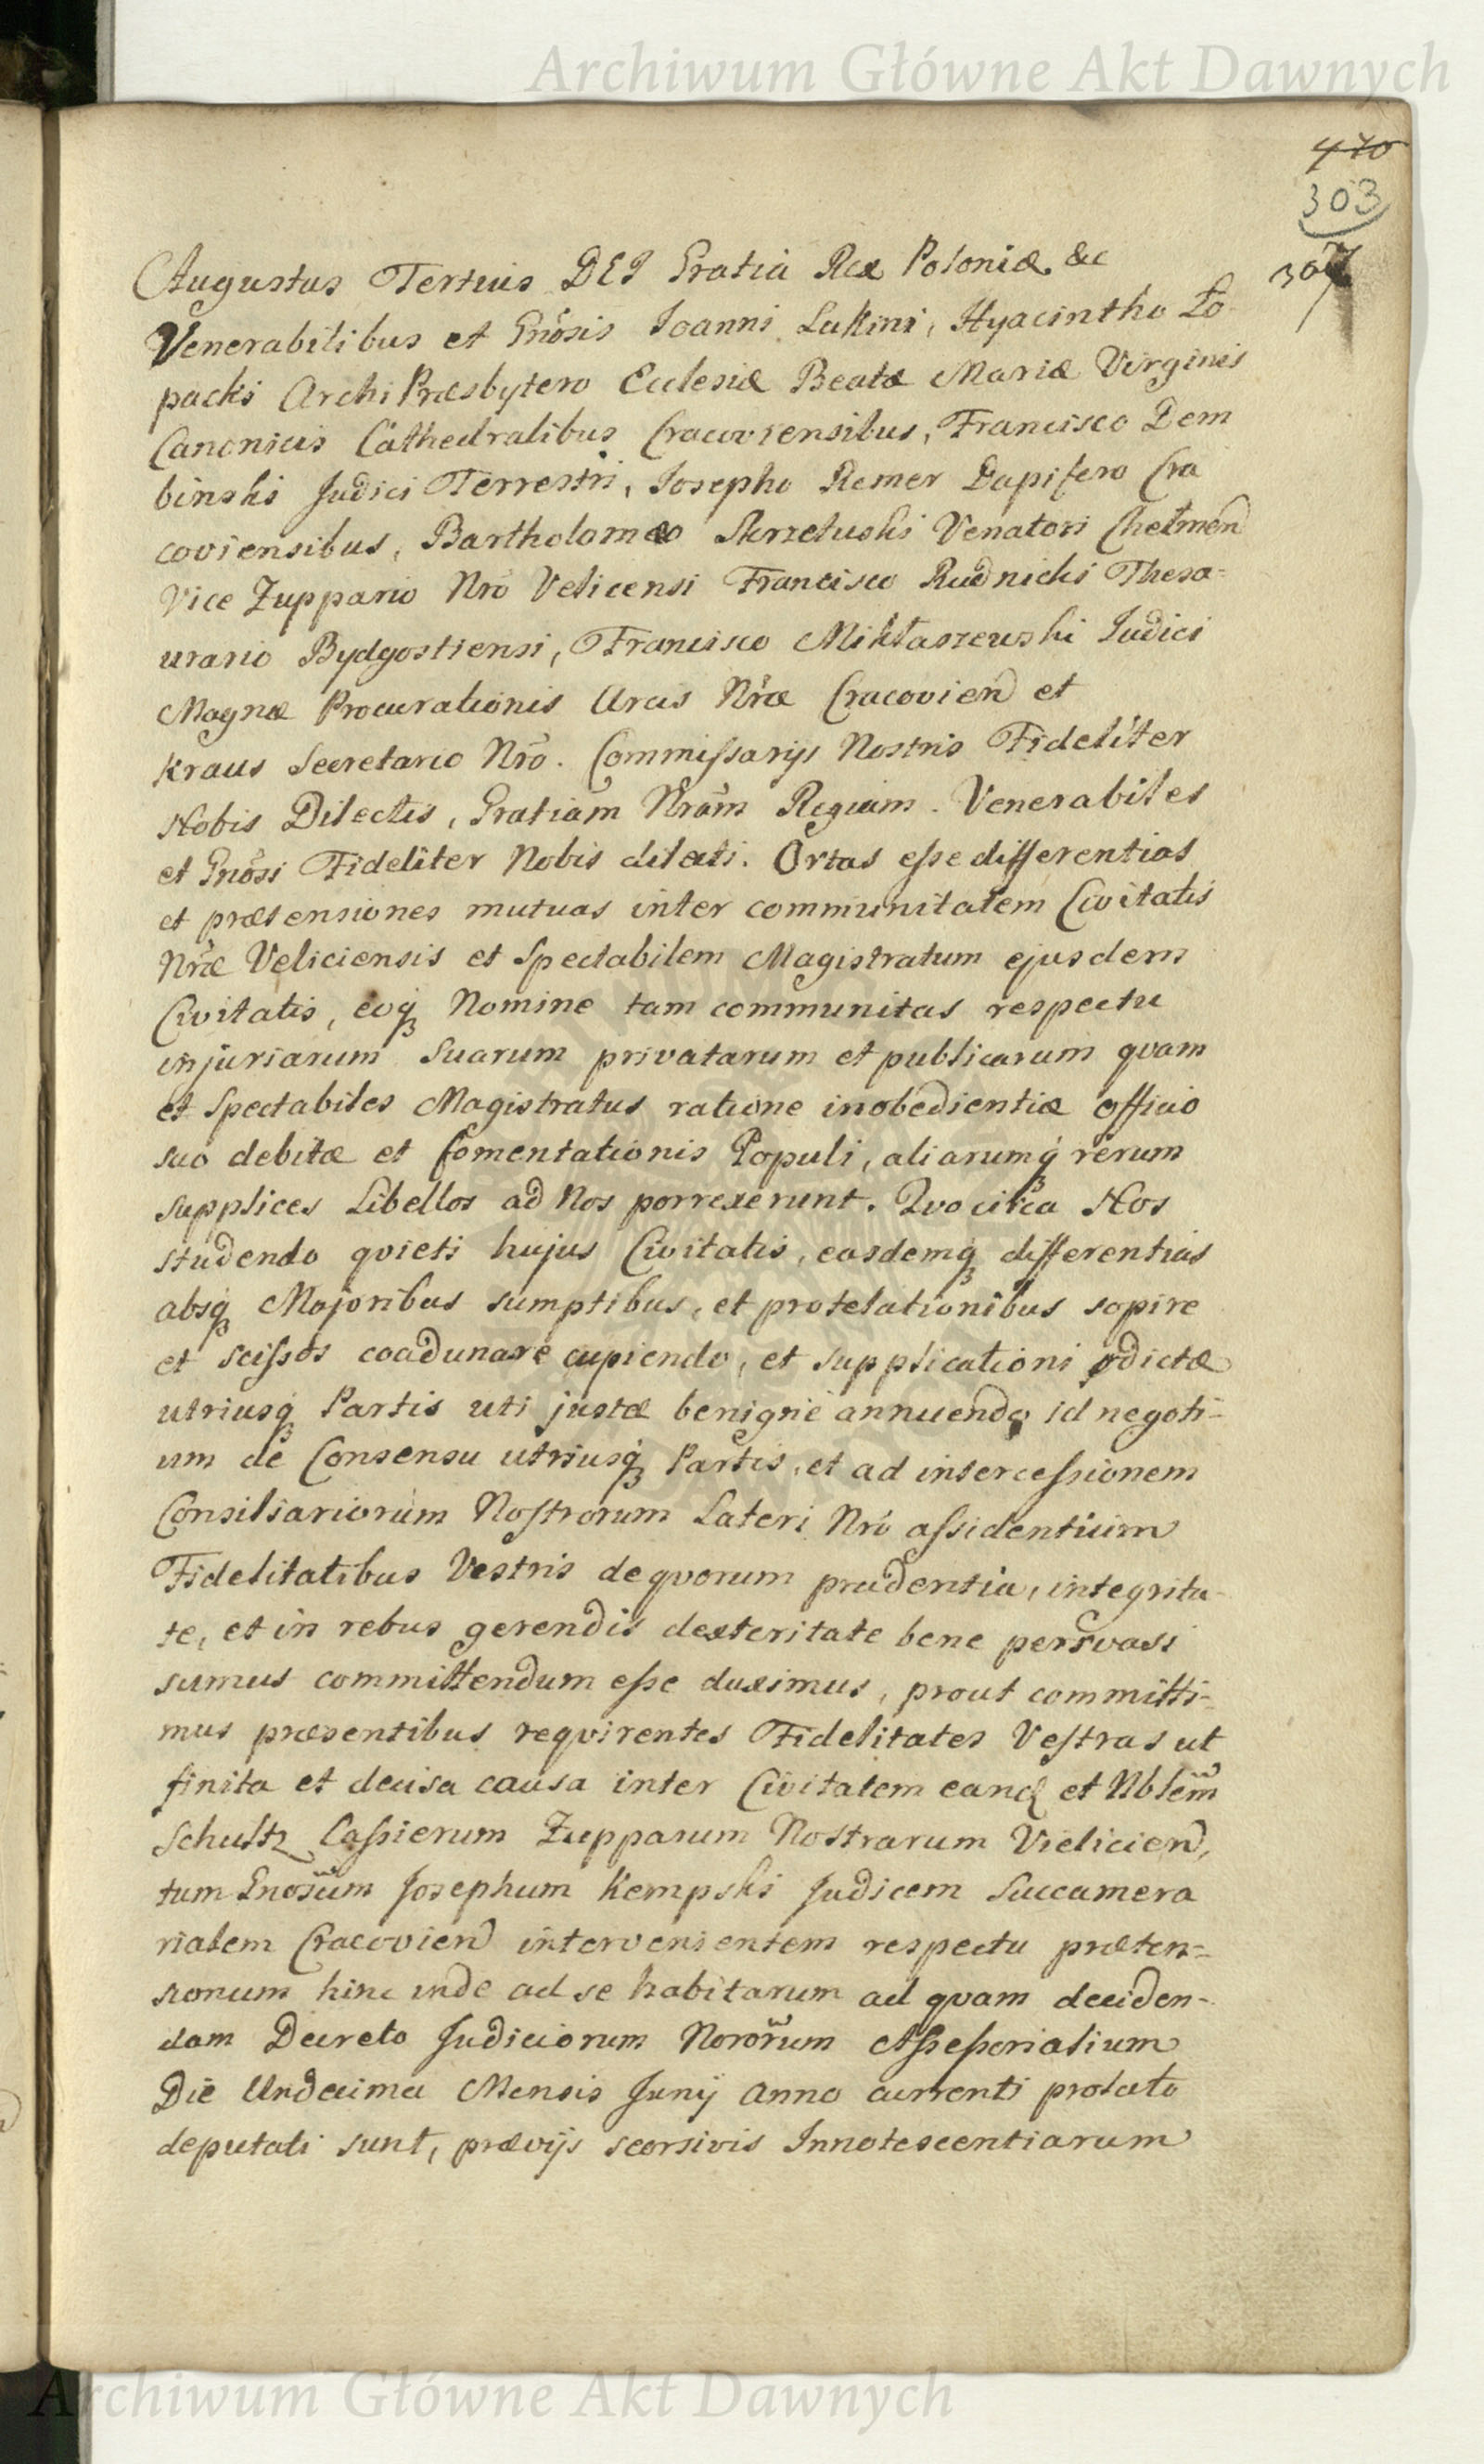 Archiwum Główne Akt Dawnych
470
303
307
Augustus Tertius DEI Gratia Rex Poloniæ &c
Venerabilibus et Gnõsis Joanni Lukini, Hyacintho Ło-
packi ArchiPræsbytero Ecclesiæ Beatæ Mariæ Virginis
Canonicis Cathedralibus Cracoviensibus, Francisco Dem
binski Judici Terrestri, Josepho Remer Dapifero Cra
coviensibus, Bartholomæo Skrzetuski Venatori Chełmen
Vice Zuppario Nrõ Velicensi Francisco Rudnicki Thesa=
urario Bydgostiensi, Francisco Mikłaszewski Judici
Magnæ Procurationis Arcis Nræ Cracovien et
Kraus Secretario Nrõ. Commissarijs Nostris Fideliter
Nobis Dilectis, Gratiam Nram Regiam. Venerabiles
et Gnõsi Fideliter Nobis dilecti. Ortas esse differentias
et prætensiones mutuas inter communitatem Civitatis
Nræ Veliciensis et Spectabilem Magistratum ejusdem
Civitatis, eoq3 Nomine tam communitas respectu
injuriarum suarum privatarum et publicarum quam
et Spectabiles Magistratus ratione inobedientiæ officio
suo debitæ et fomentationis Populi, aliarumq3 rerum
supplices Libellos ad Nos porrexerunt. Quocirca Nos
studendo quieti hujus Civitatis, easdemq3 differentias
absq3 Majoribus sumptibus, et protelationibus sopire
et scissos coadunare cupiendo, et supplicationi pdictæ
utriusq3 Partis uti justæ benignè annuendo id negoti=
um de Consensu utriusq3 Partis, et ad intercessionem
Consiliariorum Nostrorum Lateri Nrõ assidentium
Fidelitatibus Vestris de quorum prudentia, integrita-
te, et in rebus gerendis dexteritate bene persvasi
sumus committendum esse duximus, prout committi=
mus præsentibus requirentes Fidelitates Vestras ut
finita et decisa causa inter Civitatem eand et Nblem
Schultz Cassierum Zupparum Nostrarum Vielicien,
tum Gnosum Josephum Kempski Judicem Succamera
rialem Cracovien intervenientem respectu præten=
sionum hinc inde ad se habitarum ad quam deciden-
dam Decreto Judiciorum Nrorum Assessorialium
Die Undecima Mensis Junij Anno currenti prolato
deputati sunt, prævijs seorsivis Innotescentiarum
Archiwum Główne Akt Dawnych